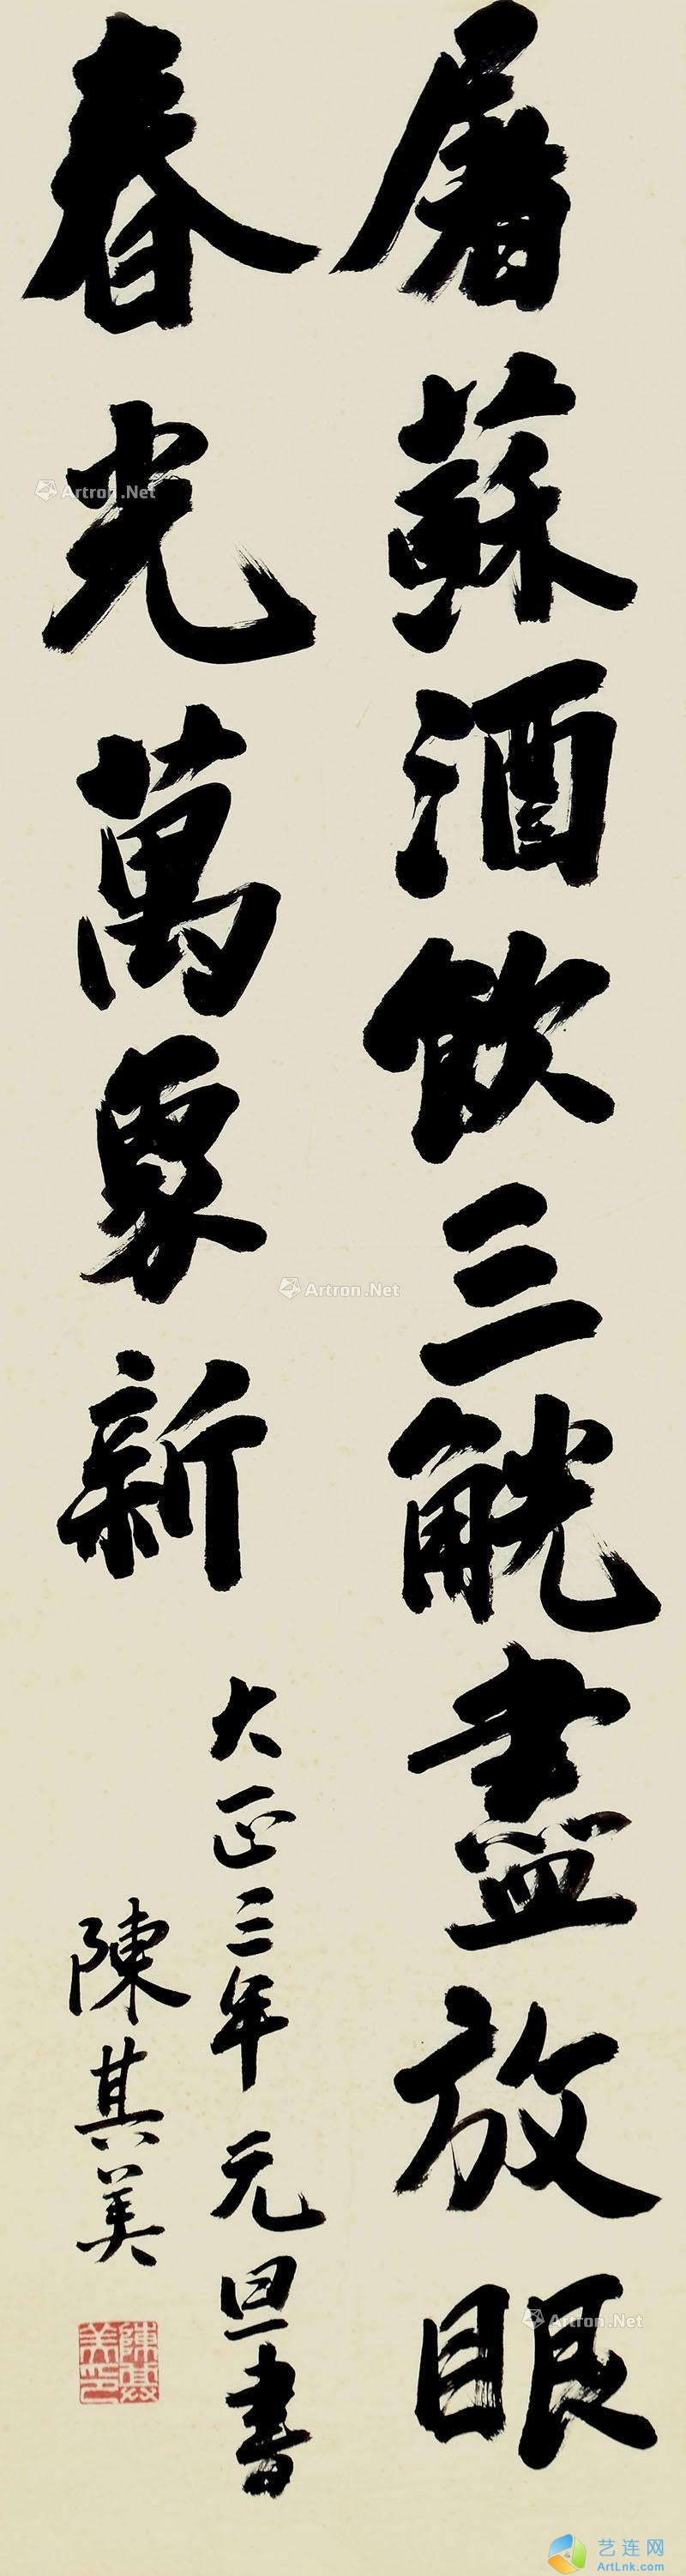 屠蘇酒飲三觥盡放眼
春光萬象新
大正三年元旦書
陳其美
陳其美印
Artron.Net
Artron.Net
Artron.Net
艺连网
ArtLnk.com